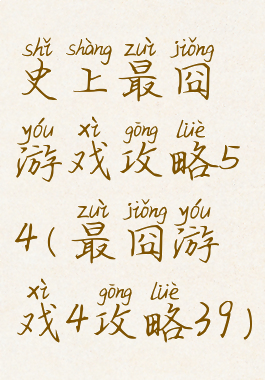 shǐ shàng zuì jiǒng
史上最囧
yóu xì gōng lüè
游戏攻略5
zuì jiǒng yóu
4(最囧游
xì gōng lüè
戏4攻略39)